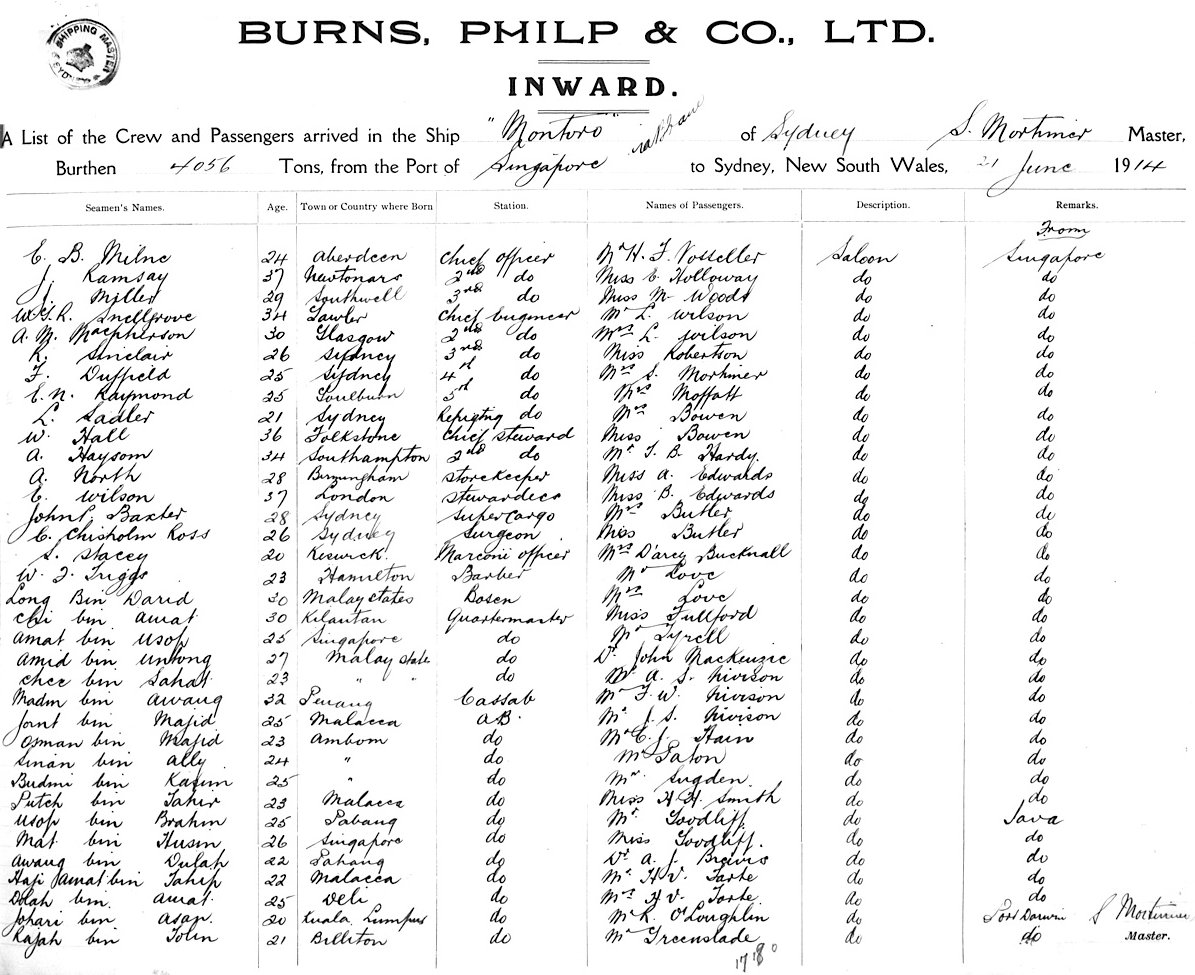 SHIPPING MASTER SYDNEY
BURNS, PHILP & CO., LTD.
INWARD.
A List of the Crew and Passengers arrived in the Ship "Montoro" of Sydney S. Mortimer Master,
Burthen 4056 Tons, from the Port of Singapore to Sydney, New South Wales, 21 June 1914
Seamen's Names. Age. Town or Country where Born Station. Names of Passengers. Description. Remarks.
From
E. B. Milne 24 Aberdeen Chief officer Mr H. F. Vosseller Saloon Singapore
J. Ramsay 37 Newtonars 2nd do Miss E Holloway do do
J. Miller 29 Southwell 3rd do Miss M Woods do do
W.G.R. Snellgrove 34 Gawler Chief Engineer Mr L. Wilson do do
A. M. Macpherson 30 Glasgow 2nd do Mrs L. Wilson do do
R. Sinclair 26 Sydney 3rd do Miss Robertson do do
F. Duffield 25 Sydney 4 do Mrs S. Mortimer do do
E. N. Raymond 25 Goulburn 5 do Mrs Moffatt do do
L. Sadler 21 Sydney Refrigtng do Mrs Bowen do do
W. Hall 36 Folkstone Chief Steward Miss Bowen do do
A. Haysom 34 Southampton 2nd do Mr T. B. Hardy. do do
A. North 28 Birmingham Storekeeper Miss A. Edwards do do
E. Wilson 37 London Stewardess Miss B. Edwards do do
John P. Baxter 28 Sydney Supercargo Mrs Butler do do
C. Chisholm Ross 26 Sydney Surgeon Miss Butler do do
S. Stacey 20 Keswick. Marconi officer Mrs D'arcy Bucknall do do
W. J. Triggs 23 Hamilton Barber Mr Love do do
Long Bin Darid 30 Malay states Bosen Mrs Love do do
Chi bin Amat 30 Kilantan Quartermaster Miss Fullford do do
Amat bin Usop 25 Singapore do Mr Tyrell do do
Amid bin Untong 27 Malay State do Dr John MacKenzie do do
Chee bin Sahat 23 " " do Mr A. S. Nivison do do
Madin bin Awang 32 Penang Cassab Mr F. W. Nivison do do
Jornt bin Majid 25 Malacca AB. Mr J. S. Nivison do do
Osman bin Majid 23 Ambom do Mr C. J. Hain do do
Sinan bin Ally 24 " do Mr Paton do do
Budmi bin Kasim 25 " do Mr Sugden do do
Putch bin Tahir 23 Malacca do Miss H. H. Smith do do
Usop bin Brahim 25 Pahang do Mr Goodliff do Java
Mat bin Husin 26 Singapore do Miss Goodliff. do do
Awang bin Dulah 22 Pahang do Dr A. J. Brevis do do
Haji Amat bin Tahip 22 Malacca do Mr H V. Tarte do do
Dolah bin Amat 25 Deli do Mrs H V. Tarte do do
Johari bin Asap. 20 Kuala Lumpur do Mr R. O'Loughlin do Port Darwin S Mortimer
Rajah bin Tolin 21 Billiton do Mr Greenslade do do Master.